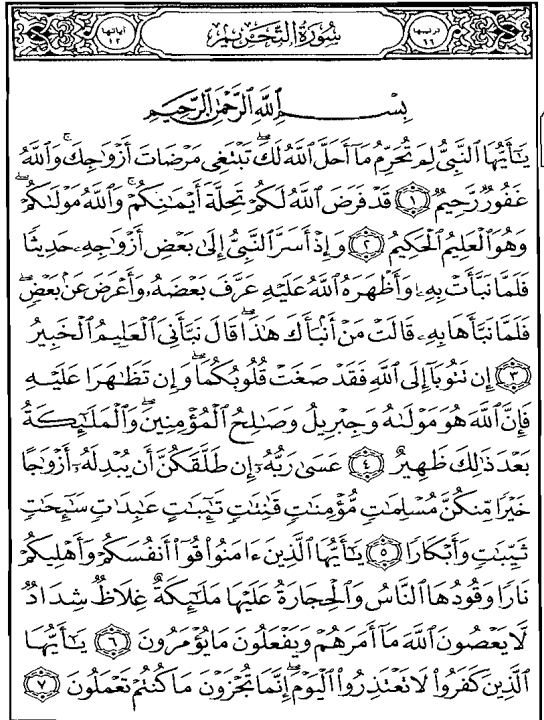 ترتيبها ٦٦
سُورَةُ التَّحْرِيمِ
آياتها ١٢
بِسْمِ ٱللَّهِ ٱلرَّحْمَٰنِ ٱلرَّحِيمِ
يَٰٓأَيُّهَا ٱلنَّبِىُّ لِمَ تُحَرِّمُ مَآ أَحَلَّ ٱللَّهُ لَكَ ۖ تَبْتَغِى مَرْضَاتَ أَزْوَٰجِكَ ۚ وَٱللَّهُ
غَفُورٌ رَّحِيمٌ ﴿١﴾ قَدْ فَرَضَ ٱللَّهُ لَكُمْ تَحِلَّةَ أَيْمَٰنِكُمْ ۚ وَٱللَّهُ مَوْلَىٰكُمْ ۖ
وَهُوَ ٱلْعَلِيمُ ٱلْحَكِيمُ ﴿٢﴾ وَإِذْ أَسَرَّ ٱلنَّبِىُّ إِلَىٰ بَعْضِ أَزْوَٰجِهِۦ حَدِيثًا
فَلَمَّا نَبَّأَتْ بِهِۦ وَأَظْهَرَهُ ٱللَّهُ عَلَيْهِ عَرَّفَ بَعْضَهُۥ وَأَعْرَضَ عَنۢ بَعْضٍ ۖ
فَلَمَّا نَبَّأَهَا بِهِۦ قَالَتْ مَنْ أَنۢبَأَكَ هَٰذَا ۖ قَالَ نَبَّأَنِىَ ٱلْعَلِيمُ ٱلْخَبِيرُ
﴿٣﴾ إِن تَتُوبَآ إِلَى ٱللَّهِ فَقَدْ صَغَتْ قُلُوبُكُمَا ۖ وَإِن تَظَٰهَرَا عَلَيْهِ
فَإِنَّ ٱللَّهَ هُوَ مَوْلَىٰهُ وَجِبْرِيلُ وَصَٰلِحُ ٱلْمُؤْمِنِينَ ۖ وَٱلْمَلَٰٓئِكَةُ
بَعْدَ ذَٰلِكَ ظَهِيرٌ ﴿٤﴾ عَسَىٰ رَبُّهُۥٓ إِن طَلَّقَكُنَّ أَن يُبْدِلَهُۥٓ أَزْوَٰجًا
خَيْرًا مِّنكُنَّ مُسْلِمَٰتٍ مُّؤْمِنَٰتٍ قَٰنِتَٰتٍ تَٰٓئِبَٰتٍ عَٰبِدَٰتٍ سَٰٓئِحَٰتٍ
ثَيِّبَٰتٍ وَأَبْكَارًا ﴿٥﴾ يَٰٓأَيُّهَا ٱلَّذِينَ ءَامَنُوا۟ قُوٓا۟ أَنفُسَكُمْ وَأَهْلِيكُمْ
نَارًا وَقُودُهَا ٱلنَّاسُ وَٱلْحِجَارَةُ عَلَيْهَا مَلَٰٓئِكَةٌ غِلَاظٌ شِدَادٌ
لَّا يَعْصُونَ ٱللَّهَ مَآ أَمَرَهُمْ وَيَفْعَلُونَ مَا يُؤْمَرُونَ ﴿٦﴾ يَٰٓأَيُّهَا
ٱلَّذِينَ كَفَرُوا۟ لَا تَعْتَذِرُوا۟ ٱلْيَوْمَ ۖ إِنَّمَا تُجْزَوْنَ مَا كُنتُمْ تَعْمَلُونَ ﴿٧﴾